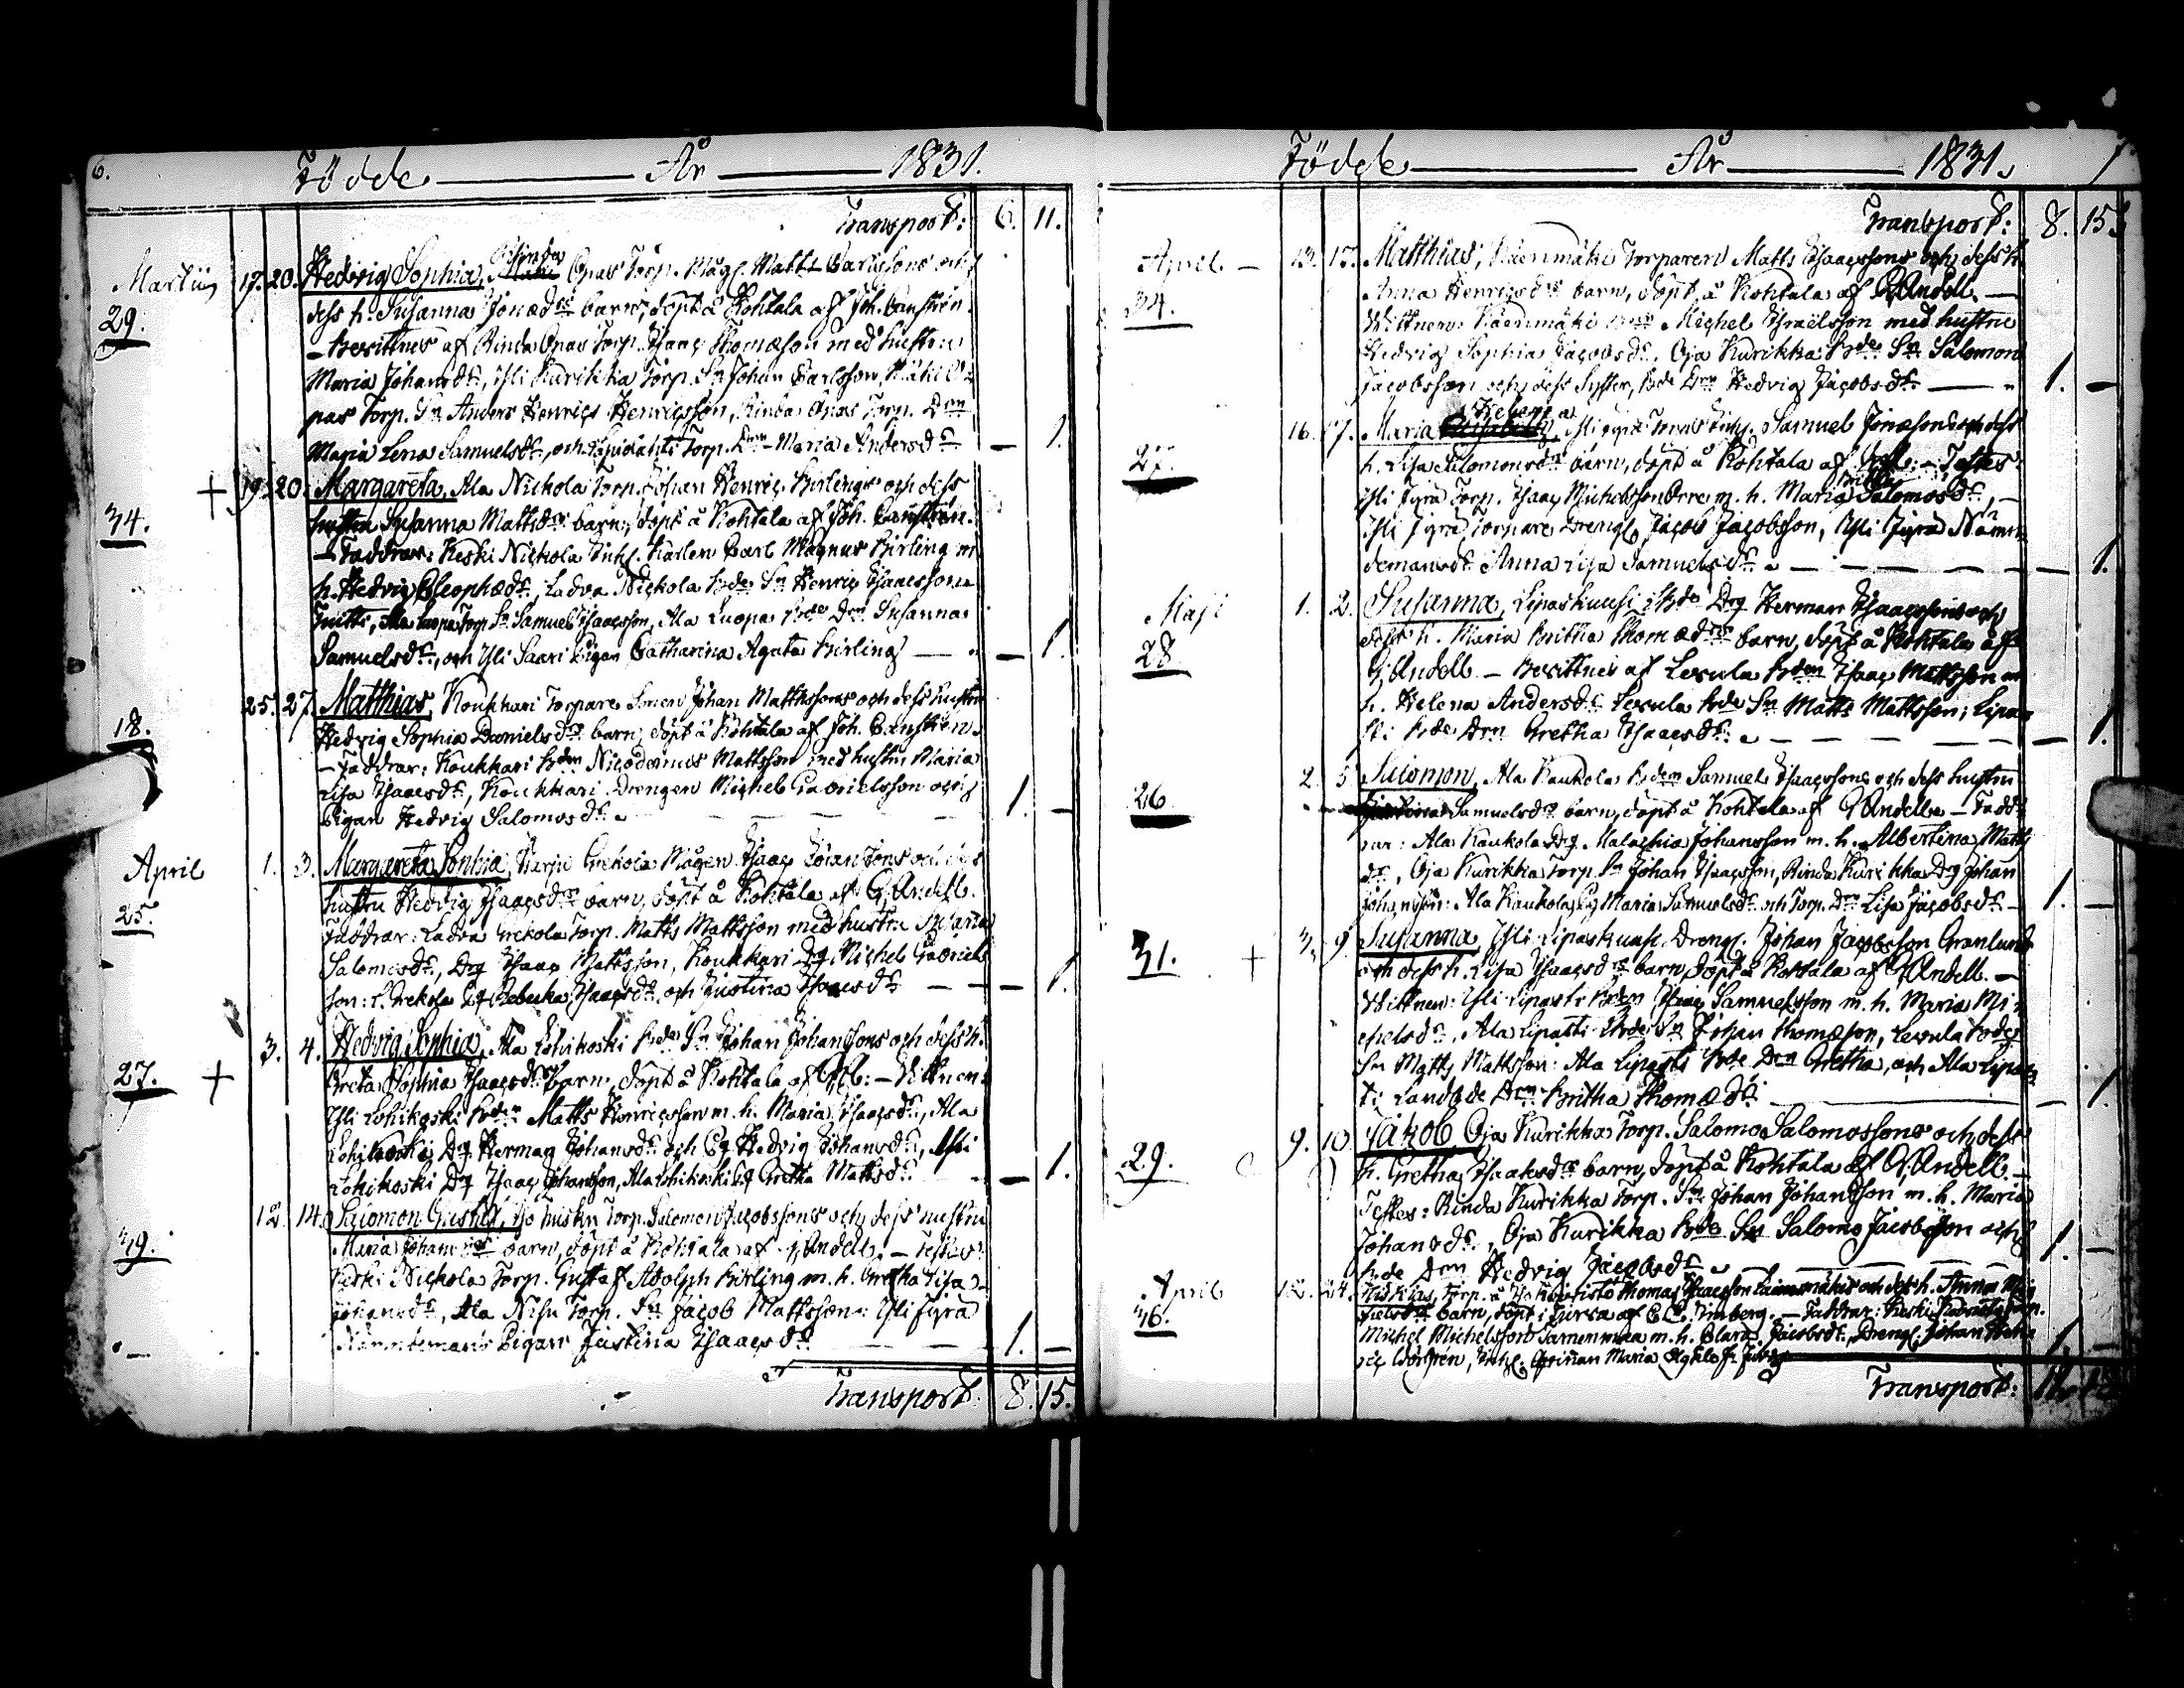 6.
Födde År 1831.
Transport: 6. 11.
Martii 17. 20. Hedvig Sophia, Opas Torp. Måg. Matts Carlssons och
29. dess h. Susanna Jonædr barn, döpt å Kohtala af Joh. Canstrén.
Bevittnes af Rinda Opas Torp. Isaac Thomæson med hustru
Maria Johansdr, Yli Kurikka Torp. Sn Johan Carlsson, Mäki O-
pas Torp. Sn Anders Henrics Henricsson, Rinda Opas Torp. Drn
Maria Lena Samuelsdr, och Torp. Drn Maria Andersdr — 1.
+ 19. 20. Margareta, Ala Nickola Torp. Johan Henric Birlings och dess
34. hustru Susanna Mattsdr barn, döpt å Kohtala af Joh. Canstrén.
— Faddrar: Keski Nickola Inh. Karlen Carl Magnus Birling m.
h. Hedvig Cleophædr, Ladva Nickola bde Sn Henric Isaacsson
Fritts, Ala Luopa Torp Sn Samuel Isaacsson, Ala Luopa bde Drn Susanna
Samuelsdr, och Yli Saari Pigan Catharina Agata Birling — 1.
25. 27. Matthias, Koukkari Torpare Sonen Johan Mattssons och dess hustru
18. Hedvig Sophia Danielsdr barn, döpt å Kohtala af Joh. Canstrén.
— Faddrar: Koukkari bden Nicodemus Mattsson med hustru Maria
Lisa Isaacsdr, Koukkari Drengen Michel Gabrielsson och
Pigan Hedvig Salomosdr 1. —
April 1. 3. Margareta Sophia, Harju Grekola Mågen Isaac Johanssons och dess
25. hustru Hedvig Isaacsdr barn, döpt å Kohtala af G. Andell.
Faddrar: Ladva Grekola Torp. Matts Mattsson med hustru Maria
Salomosdr, Drg Isaac Mattsson, Koukkari Drg Michel Gabriels
son: L. Grekola Pg Rebecka Isaacsdr och Justina Isaacsdr — 1.
3. 4. Hedvig Sophia, Ala Lohikoski bde Sn Johan Johanssons och dess h.
27. + Greta Sophia Isaacsdr barn, döpt å Kohtala af — Vittnen:
Yli Lohikoski bden Matts Henricsson m. h. Maria Isaacsdr, Ala
Lohikoski Drg Herman Johansdr och Pg Hedvig Johansdr, Yli
Lohikoski Drg Isaac Johansson, Ala Lohikoski Pg Gretha Mattsdr — 1.
12. 14. Salomon Gustaf, Torp. Salomon Jacobssons och dess hustru
49. Maria Johansdr barn, döpt å Kohtala af G. Andell. — Testes:
Keski Nickola Torp. Gustaf Adolph Birling m. h. Gretha Lisa
Johansdr, Ala Nisu Torp. Sn Jacob Mattsson: Yli Jyrä
Nämndemans Pigan Justina Isaacsdr 1. —
Transport: 8. 15.
Födde År 1831.
7
Transport: 8. 15.
April — 13. 17. Matthias, Käenmäki Torparen Matts Isaacssons och dess h.
34. Anna Henricsdr barn, döpt å Kohtala af G. Andell. —
Vittnen: Käenmäki Michel Israëlsson med hustru
Hedvig Sophia Jacobsdr. Oja Kurikka bde Sn Salomon
Jacobsson och dess Syster, bde Drn Hedvig Jacobsdr 1. —
16. 17. Maria Helena, Yli Jyrä Inh. Samuel Jonæsons och dess
27. h. Lisa Salomonsdr barn, döpt å Kohtala af — Testes:
Yli Jyrä Torp. Isaac Michelsson Orre m. h. Maria Salomosdr, —
Yli Jyrä Torpare Drengl Jacob Jacobsson, Yli Jyrä Nämn-
demansdr Anna Lisa Samuelsdr — 1.
Maji 1. 2. Susanna, Lipaskuusi bde Drg Herman Isaacssons och
28. dess h. Maria Britha Thomædr barn, döpt å Kohtala af
G. Andell — Bevittnes af Levula bden Isaac Mattsson m.
h. Helena Andersdr Levula bde Sn Matts Mattsson; Lipas-
ti bde Drn Gretha Isaacsdr — 1.
2. 5 Salomon, Ala Kaukola bden Samuel Isaacssons och dess hustru
26 Samuelsdr barn, döpt å Kohtala af G. Andell — Fadd-
rar: Ala Kaukola Drg. Malachia Johansson m. h. Albertina Matts
dr, Oja Kurikka Torp. Sn Johan Isaacsson, Rinda Kurikka Drg Johan
Johansson: Ala Kaukola Pg Maria Samuelsdr och Torp. Drn Lisa Jacobsdr 1. —
31. + 3. 9 Susanna, Yli Lipaskuusi Drengl. Johan Jacobsson Granlunds
och dess h. Lisa Isaacsdr barn, döpt å Kohtala af G. Andell. —
Vittnen: Yli Lipasti bden Isaac Samuelsson m. h. Maria Mi-
chelsdr, Ala Lipasti bde Sn Johan Thomæson, Levula bde
Sn Matts Mattsson: Ala Lipasti bde Drn Gretha, och Ala Lipas-
ti Landbde Drn Britha Thomædr — 1.
9. 10 Jakob Oja Kurikka Torp. Salomo Salomossons och dess
29. h. Gretha Isaaksdr barn, döpt å Kohtala af G. Andell. —
Testes: Rinda Kurikka Torp. Sn Johan Johansson m. h. Maria
Johansdr, Oja Kurikka bde Sn Salomo Jacobsson och
bde Drn Hedvig Jacobsdr 1. —
April 12. 24. Torp. å Thomas Isaacsson och dess h. Anna Mic-
36. helsdr barn, döpt i af — Faddrar: Keski
Michel Michelsson m. h. Clara Jacobsdr, Drengl. Johan
Maria
Transport: